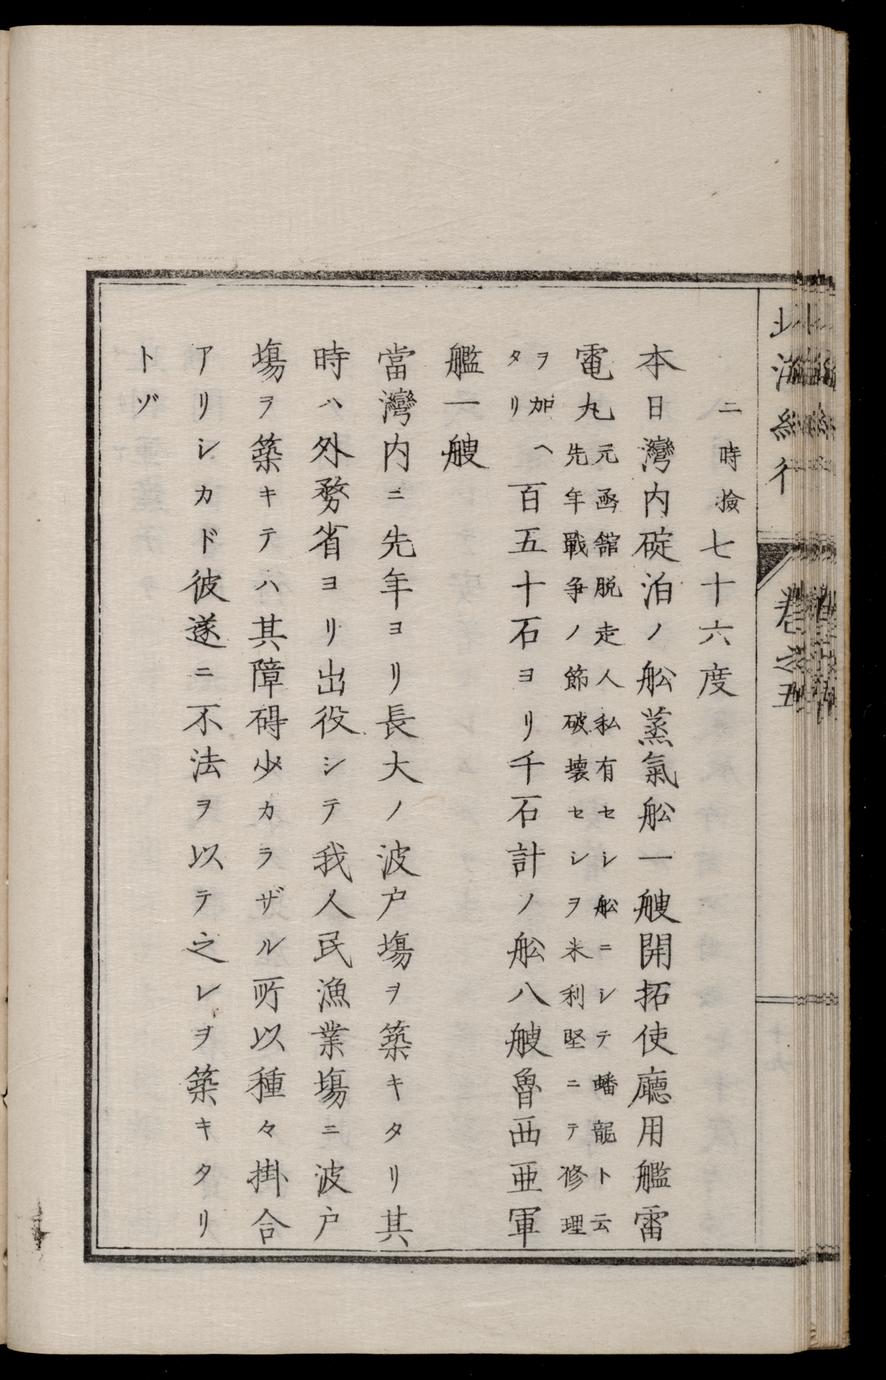 二時撿七十六度
本日灣内碇泊ノ舩蒸氣舩一艘開拓使廳用艦雷
電丸元函館脱走人私有セシ舩ニシテ蟠龍ト云
先年戰争ノ節破壊セシヲ米利堅ニテ修理
ヲ加ヘ
タリ百五十石ヨリ千石計ノ舩八艘魯西亜軍
艦一艘
當灣内ニ先年ヨリ長大ノ波戸塲ヲ築キタリ其
時ハ外務省ヨリ出役シテ我人民漁業塲ニ波戸
塲ヲ築キテハ其障碍少カラザル所以種々掛合
アリシカド彼遂ニ不法ヲ以テ之レヲ築キタリ
トゾ
北海紀行 巻之五